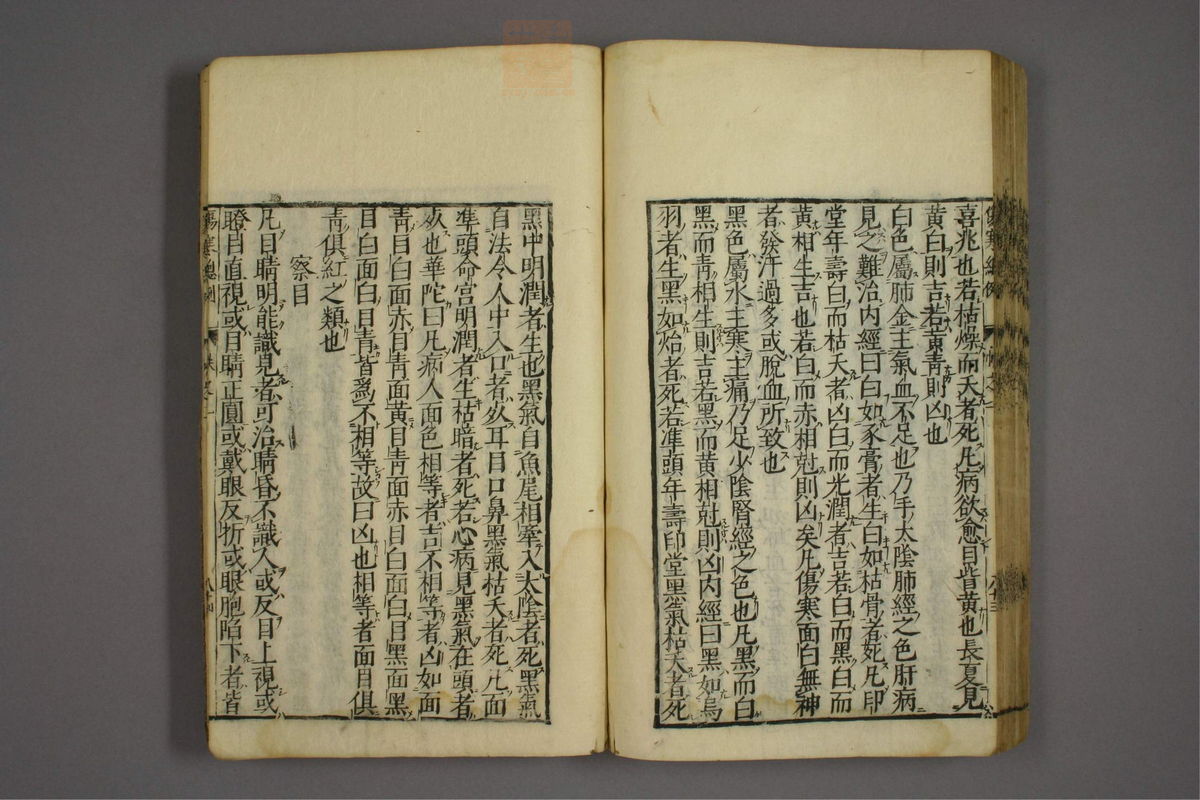 喜兆也若枯燥而夭者死凡病欲愈目眥黃也長夏見
黃白則吉若黃靑則凶也
白色屬肺金主氣血不足也乃手太陰肺經之色肝病
見之難治內經曰白如豕膏者生白如枯骨者死凡印
堂年壽白而枯夭者凶白而光潤者吉若白而黑白而
黃相生吉也若白而赤相尅則凶矣凡傷寒面白無神
者發汗過多或脫血所致也
黑色屬水主寒主痛乃足少陰腎經之色也凡黑而白
黑而靑相生則吉若黑而黃相尅則凶內經曰黑如烏
羽者生黑如炲者死若準頭年壽印堂黑氣枯夭者死
黑中明潤者生也黑氣自魚尾相牽入太陰者死黑氣
自法令人中入口者死耳目口鼻黑氣枯夭者死凡面
準頭命宮明潤者生枯暗者死若心病見黑氣在頭者
死也華陀曰凡病人面色相等者吉不相等者凶如面
靑目白面赤目靑面黃目靑面赤目白面白目黑面黑
目白面白目靑皆爲不相等故曰凶也相等者面目俱
靑俱紅之類也
察目
凡目睛明能識見者可治睛昏不識人或反目上視或
瞪目直視或目睛正圓或戴眼反折或眼胞陷下者皆
傷寒總例
八十四